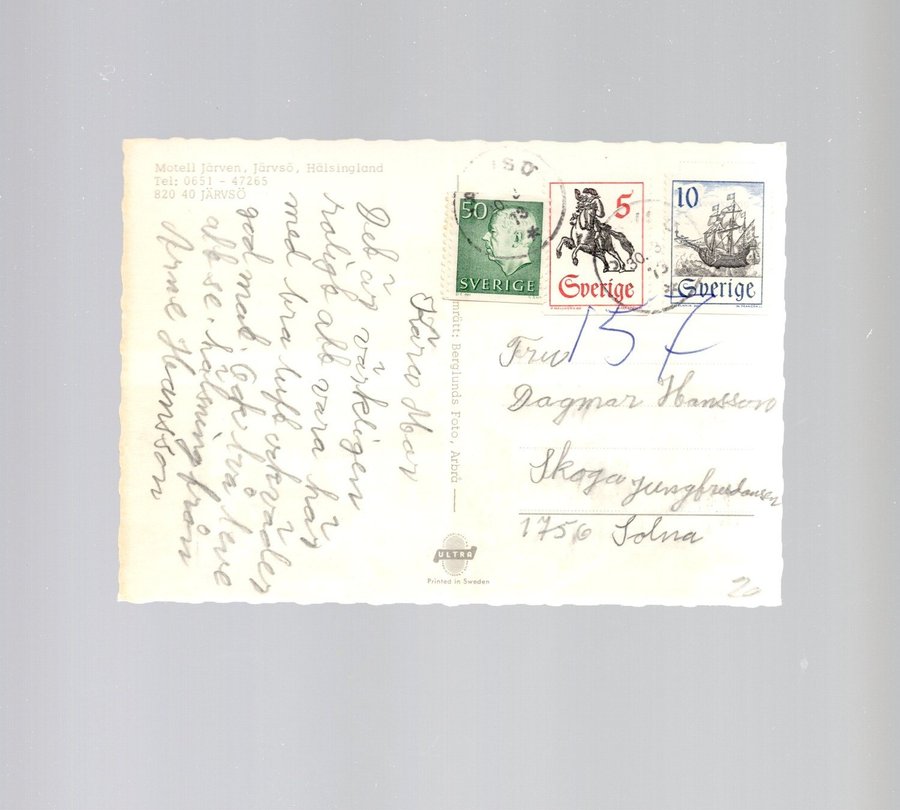 Motell Järven, Järvsö, Hälsingland
Tel: 0651 - 47265
820 40 JÄRVSÖ
Kära Mor
Det är värkligen
roligt att vara här
med bra luft
god mat. Och två
att se. hälsning från
Arne Hansson
mrätt: Berglunds Foto, Arbrå
ULTRA
Printed in Sweden
50
SVERIGE
5
Sverige
10
Sverige
157
Fru
Dagmar Hansson
Skoga Jungfrudansen
1756 Solna
20